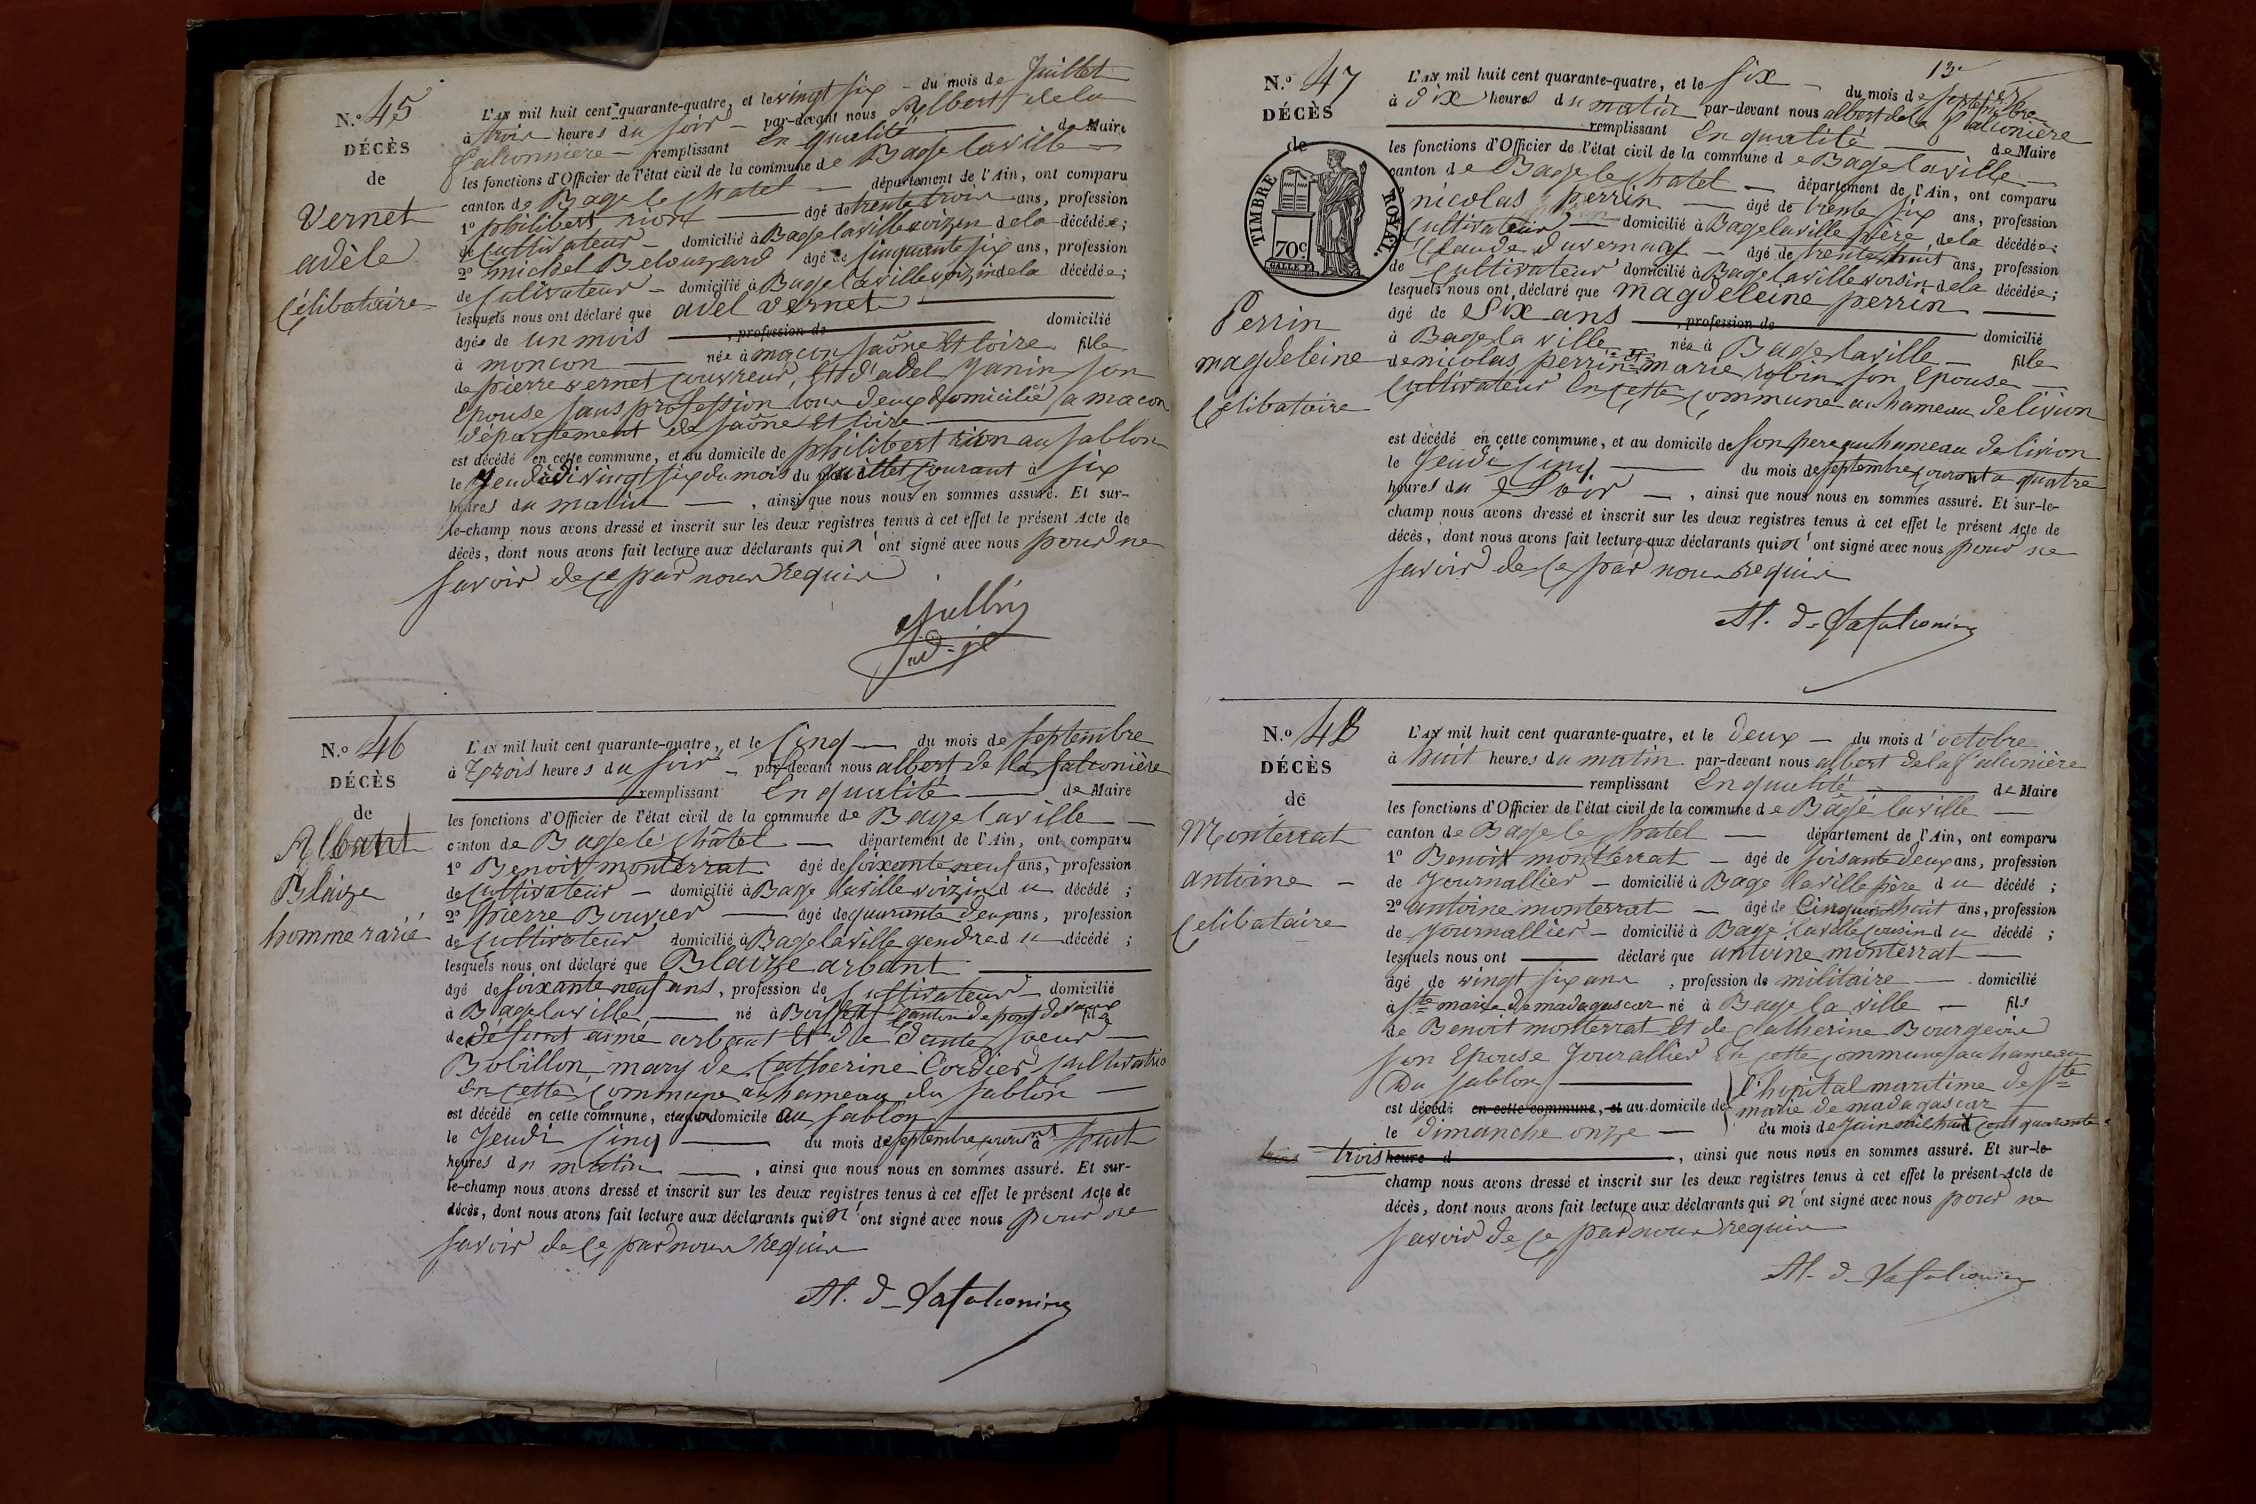 N.o 45
DÉCÈS
de
Vernet
adèle
Célibataire
L'AN mil huit cent quarante-quatre, et le vingt six du mois de Juillet
à trois heures du soir par-devant nous Albert de la
falconnière remplissant En qualité de Maire
les fonctions d'Officier de l'état civil de la commune de Bage laville
canton de Bage le chatel département de l'Ain, ont comparu
1o philibert rion âgé de trente trois ans, profession
de Cultivateur domicilié à Bage laville voizin de la décédée;
2o michel Belouzard âgé de Cinquante six ans, profession
de Cultivateur domicilié à Bage laville voizin de la décédée;
lesquels nous ont déclaré que adel vernet
âgée de un mois , profession de domicilié
à moncon née à macon saône Et loire fille
de pierre vernet couvreur, Et d'adel Janin son
Epouse sans profession tous deux domicilié a macon
département de saône Et loire
est décédé en cette commune, et au domicile de philibert rion au sablon
le vingt six du mois du juillet courant à six
heures du matin , ainsi que nous nous en sommes assuré. Et sur-
le-champ nous avons dressé et inscrit sur les deux registres tenus à cet effet le présent Acte de
décès, dont nous avons fait lecture aux déclarants qui n'ont signé avec nous pour ne
savoir de ce par nous requis
N.o 46
DÉCÈS
de
Blaize
homme marié
L'AN mil huit cent quarante-quatre, et le Cinq du mois de septembre
à Trois heures du soir par-devant nous albert de la falconière
remplissant En qualité de Maire
les fonctions d'Officier de l'état civil de la commune de Bage laville
canton de Bage le châtel département de l'Ain, ont comparu
1o Benoit monterrat âgé de soixante neuf ans, profession
de Cultivateur domicilié à Bage laville voizin du décédé;
2o pierre Bouvier âgé de quarante deux ans, profession
de Cultivateur domicilié à Bage laville gendre du décédé;
lesquels nous ont déclaré que Blaize arbant
âgé de soixante neuf ans, profession de Cultivateur domicilié
à Bage laville, né à canton de pont de vaux fils
de défunt aimé arbant Et de
Bobillon, mary de Catherine Cordier
En cette commune au hameau du sablon
est décédé en cette commune, et au domicile au sablon
le Jeudi Cinq du mois de septembre courant à huit
heures du matin , ainsi que nous nous en sommes assuré. Et sur-
le-champ nous avons dressé et inscrit sur les deux registres tenus à cet effet le présent Acte de
décès, dont nous avons fait lecture aux déclarants qui n'ont signé avec nous pour ne
savoir de ce par nous requis
Al. de Lafalconière
13
N.o 47
DÉCÈS
de
TIMBRE ROYAL.
70c.
Perrin
magdeleine
Célibatoire
L'AN mil huit cent quarante-quatre, et le six du mois de septembre
à dix heures du matin par-devant nous albert de la falconière
remplissant En qualité de Maire
les fonctions d'Officier de l'état civil de la commune de Bage laville
canton de Bage le chatel département de l'Ain, ont comparu
1o nicolas perrin âgé de trente six ans, profession
Cultivateur domicilié à Bage laville père de la décédée;
Claude duvernay âgé de trente huit ans, profession
de Cultivateur domicilié à Bage laville voisin de la décédée;
lesquels nous ont déclaré que magdeleine perrin
âgé de Six ans , profession de domicilié
à Bage la ville née à Bage laville fille
de nicolas perrin Et marie robin son Epouse
Cultivateur En cette commune au hameau de livion
est décédé en cette commune, et au domicile de son pere au hameau de livion
le Jeudi cinq du mois de septembre courant a quatre
heures du Soir , ainsi que nous nous en sommes assuré. Et sur-le-
champ nous avons dressé et inscrit sur les deux registres tenus à cet effet le présent Acte de
décès, dont nous avons fait lecture aux déclarants qui n'ont signé avec nous pour ne
savoir de ce par nous requis
Al. de Lafalconière
N.o 48
DÉCÈS
de
Monterrat
antoine
Celibataire
L'AN mil huit cent quarante-quatre, et le deux du mois d'octobre
à huit heures du matin par-devant nous albert de la falconière
remplissant En qualité de Maire
les fonctions d'Officier de l'état civil de la commune de Bâgé laville
canton de Bage le chatel département de l'Ain, ont comparu
1o Benoit montterrat âgé de soisante deux ans, profession
de Journallier domicilié à Bage laville père du décédé;
2o antoine monterrat âgé de Cinquante huit ans, profession
de Journallier domicilié à Bage laville cousin du décédé;
lesquels nous ont déclaré que antoine monterrat
âgé de vingt six ans , profession de militaire domicilié
à Ste marie de madagascar né à Bage la ville fils
de Benoit monterrat Et de Catherine Bourgeois
son Epouse Jourallier En cette commune au hameau
Du sablon
est décédé en cette commune, et au domicile de l'hopital maritime de Ste
marie de madagascar
le dimanche onze du mois de Juin mil huit cent quarante
trois trois heure d , ainsi que nous nous en sommes assuré. Et sur-le-
champ nous avons dressé et inscrit sur les deux registres tenus à cet effet le présent Acte de
décès, dont nous avons fait lecture aux déclarants qui n'ont signé avec nous pour ne
savoir de ce par nous requis
Al. de Lafalconière